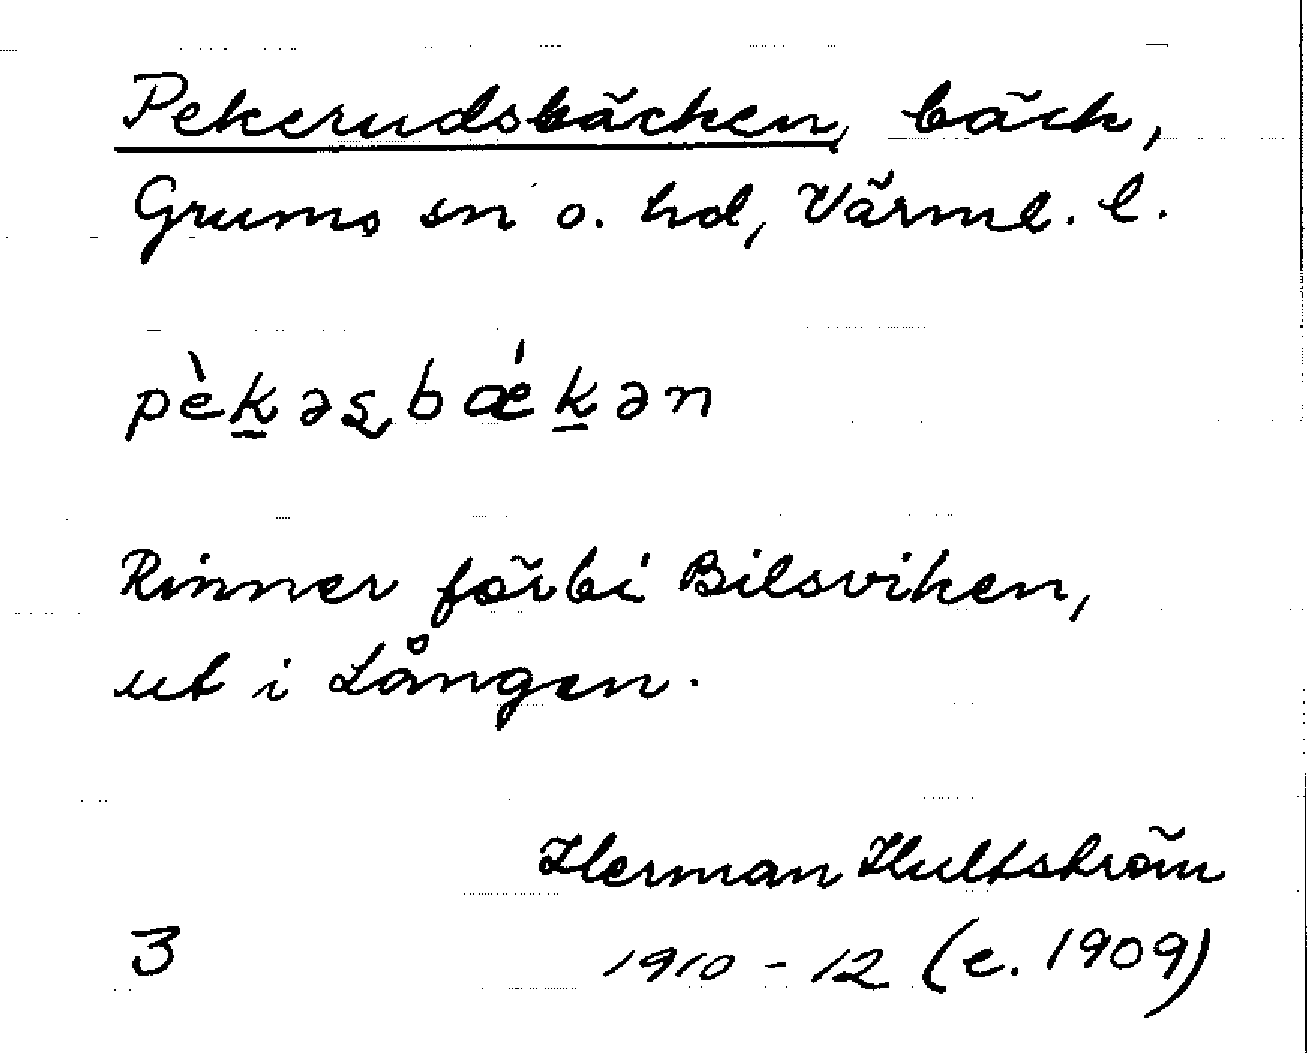 Pekerudsbäcken, bäck,
Grums sn o. hd, Värml. l.
pèk̲əs̡bǽk̲ən
Rinner förbi Bilsviken,
ut i Lången.
Herman Hultström
3 1910-12 (e. 1909)